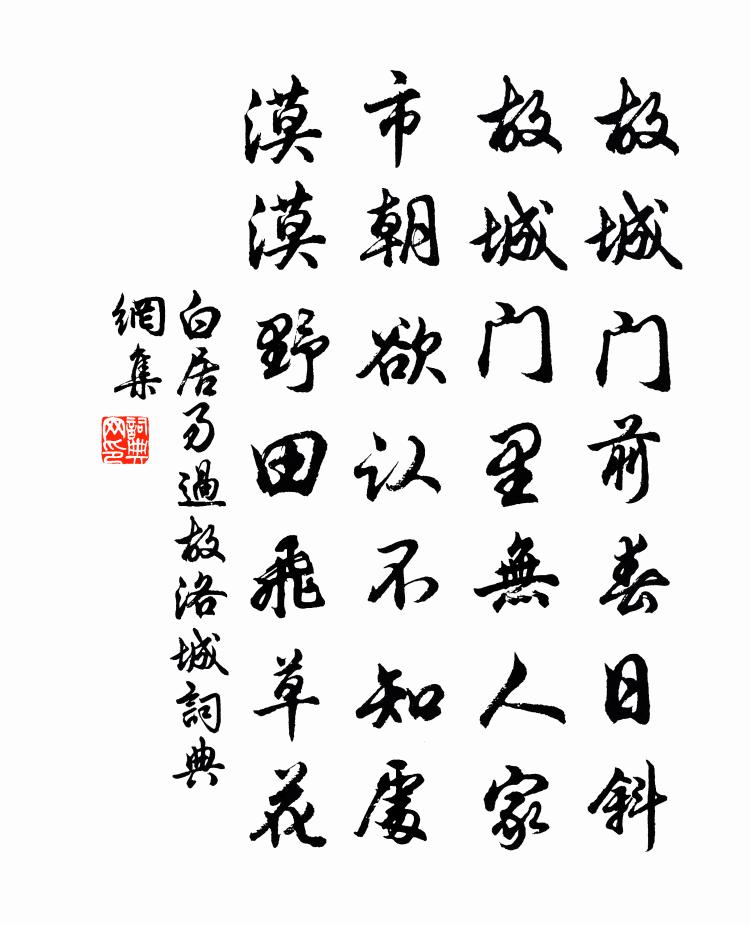 故城门前春日斜
故城门里無人家
市朝欲认不知處
漠漠野田飛草花
白居易過故洛城詞典
網集
詞典
网印